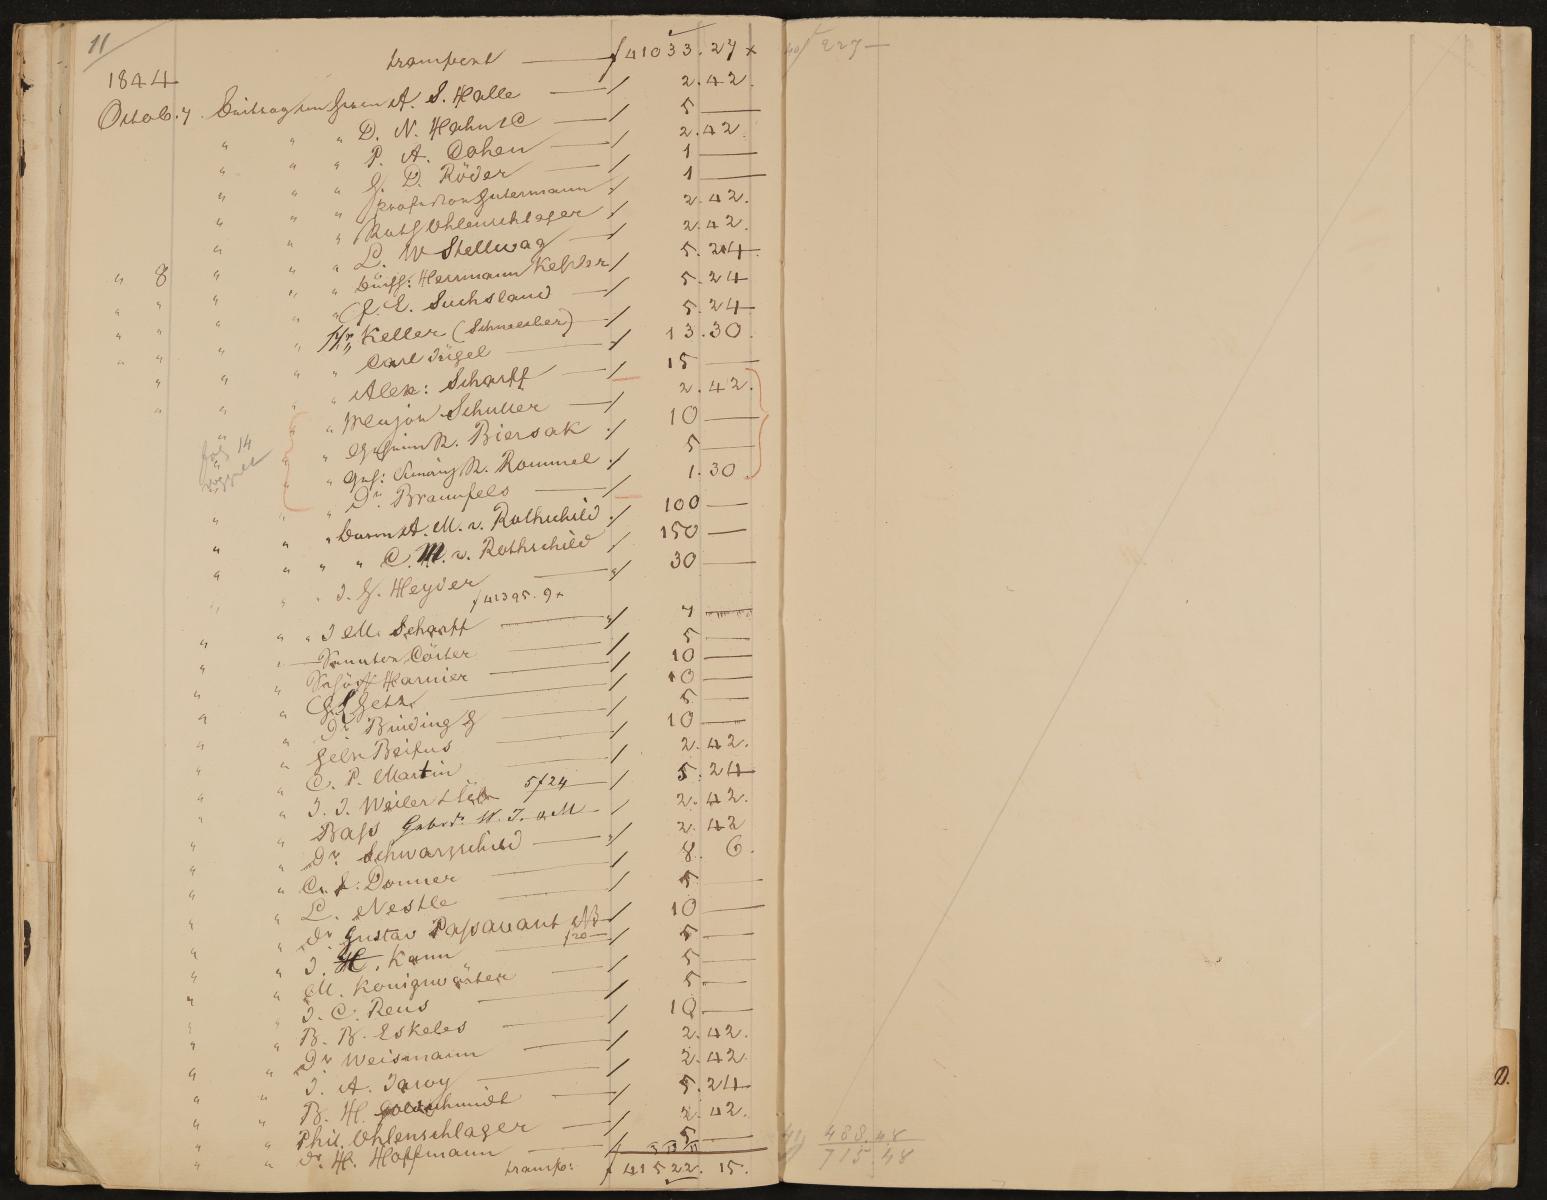 11
transport f 41033. 27 x
1844
Octob. 7. Beitrag von Herrn A. S. Halle 2. 42.
" " " D. N. Hahn & C 5 —
" " " P. A. Cohen 2. 42.
" " " G. D. Röder 1 —
" " " Professor Gutermann 1 —
" " " Rath Ohlenschlager 2. 42.
" " " L. W Stellwag 2. 42.
" 8 " " " Herrmann Keßler 5. 24
" " " " " E. Suchsland 5. 24
" " " " Keller (Schumacher) 5. 24
" " " " " Carl Jügel 13. 30.
" " " " Alex: Scharff 15 —
" " " " Major Schuller 2. 42.
" " " R. Biersak 10 —
fol 14
" " " R. Rommel 5 —
" " " Dr. Braunfels 1. 30
" " " Baron A. M. v. Rothschild 100 —
" " " " C. M. v. Rothschild 150 —
" " " J. G. Heyder 30 —
f 41395. 9 x
" " " J M. Scharff 7
" " Senator Cöster 5 —
" " Schöff Harnier 10 —
" " Getz 10 —
" " Dr. Binding 5 —
" " Gebr Beifus 10 —
" " C. P. Martin 2. 42.
" " J. J. Weiler & 5 f 24 5. 24
" " Bass Gebrd. 2. 42.
" " Dr. Schwarzschild 2. 42
" " Donner 8. 6.
" " L. Nestle 5 —
" " Dr Gustav Passavant 10 —
f 20 —
" " J. H. Kann 5 —
" " M. Konigswärter 5 —
" " J. C. Reus 5 —
" " B. B. Eskeles 10 —
" " Dr Weismann 2. 42.
" " J. A. 2. 42.
" " B. H. Goldschmidt 5. 24
" " Phil. Ohlenschlager 2. 42.
" " Dr. H. Hoffmann 5 —
transp: f 41522. 15.
40/ 227 —
41/ 488. 48
715. 48
D.